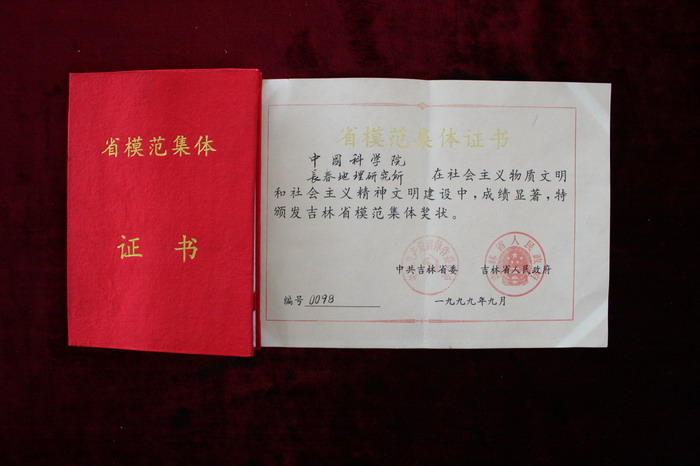 省模范集体
证书
省模范集体证书
中国科学院
长春地理研究所 在社会主义物质文明
和社会主义精神文明建设中，成绩显著，特
颁发吉林省模范集体奖状。
中共吉林省委 吉林省人民政府
吉林省人民政府
编号 0098
一九九九年九月